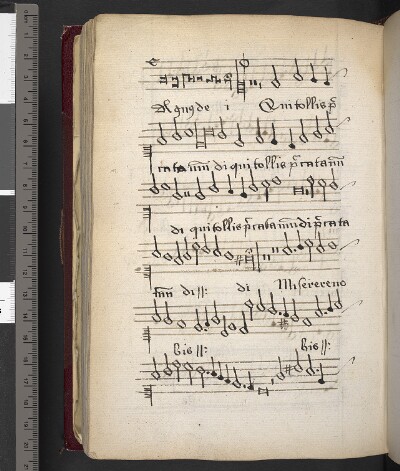 Agnus de i Qui tollis p̄
cata mūn di qui tollis p̄cata mūn
di qui tollis p̄cata mūn di p̄cata
mūn di ||: di Miserere no
bis ||: bis ||: